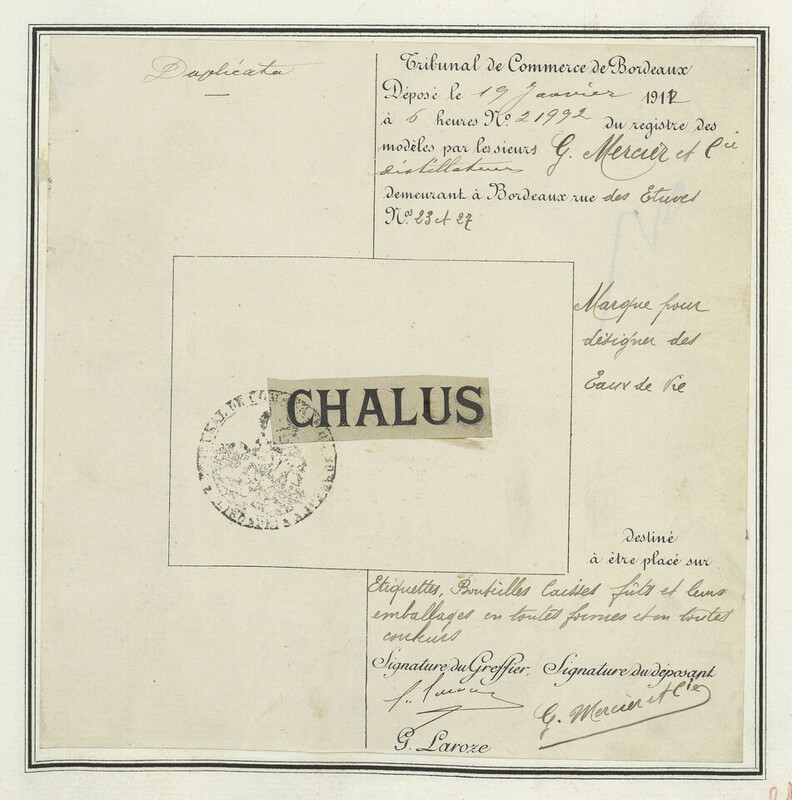 Duplicata
Tribunal de Commerce de Bordeaux
Déposé le 19 Janvier 1912
à 6 heures Nº 21992 du registre des
modèles par les sieurs G. Mercier et Cie
distillateurs
demeurant à Bordeaux rue des Etuves
Nos 23 et 27
Marque pour
désigner des
Eaux de Vie
CHALUS
TRIBUNAL DE COMMERCE DE BORDEAUX
destiné
à être placé sur
Etiquettes, Bouteilles Caisses fûts et leurs
emballages en toutes formes et en toutes
couleurs
Signature du Greffier, Signature du déposant
G. Mercier et Cie
G. Laroze